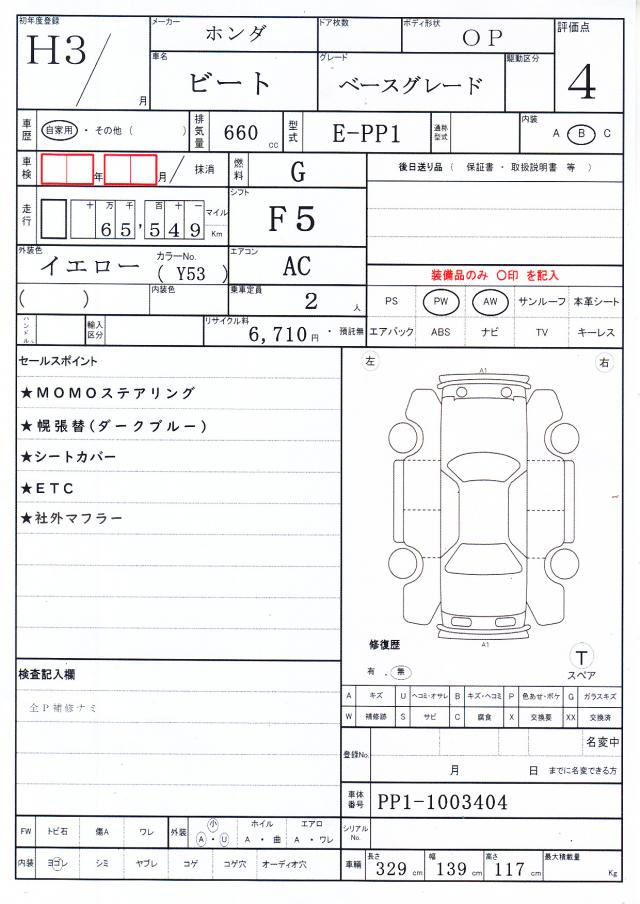 初年度登録 メーカー ドア枚数 ボディ形状 評価点
H3/ 月 ホンダ OP 4
車名 グレード 駆動区分
ビート ベースグレード
車歴 自家用・その他( ) 排気量 660cc 型式 E-PP1 通称型式 内装 A・B・C
車検 年 月/抹消 燃料 G 後日送り品( 保証書・取扱説明書 等 )
走行 十万千百十一 65,549 マイル Km シフト F5
外装色 イエロー カラーNo. (Y53) エアコン AC 装備品のみ 〇印 を記入
( ) 内装色 乗車定員 2人 PS PW AW サンルーフ 本革シート
ハンドル 輸入区分 リサイクル料 6,710円・預託無 エアバック ABS ナビ TV キーレス
セールスポイント 左 右
A1
★MOMOステアリング
★幌張替(ダークブルー)
★シートカバー
★ETC
★社外マフラー
A1
修復歴
有.無
T
スペア
検査記入欄
全P補修ナミ
A キズ U ヘコミ・オサレ B キズ・ヘコミ P 色あせ・ボケ G ガラスキズ
W 補修跡 S サビ C 腐食 X 交換要 XX 交換済
登録No. 名変中
月 日 までに名変できる方
車体番号 PP1-1003404
FW トビ石 傷A ワレ 外装 小 A・U ホイル A・曲 エアロ A・ワレ シリアルNo.
内装 ヨゴレ シミ ヤブレ コゲ コゲ穴 オーディオ穴 車輛 長さ 329cm 幅 139cm 高さ 117cm 最大積載量 Kg